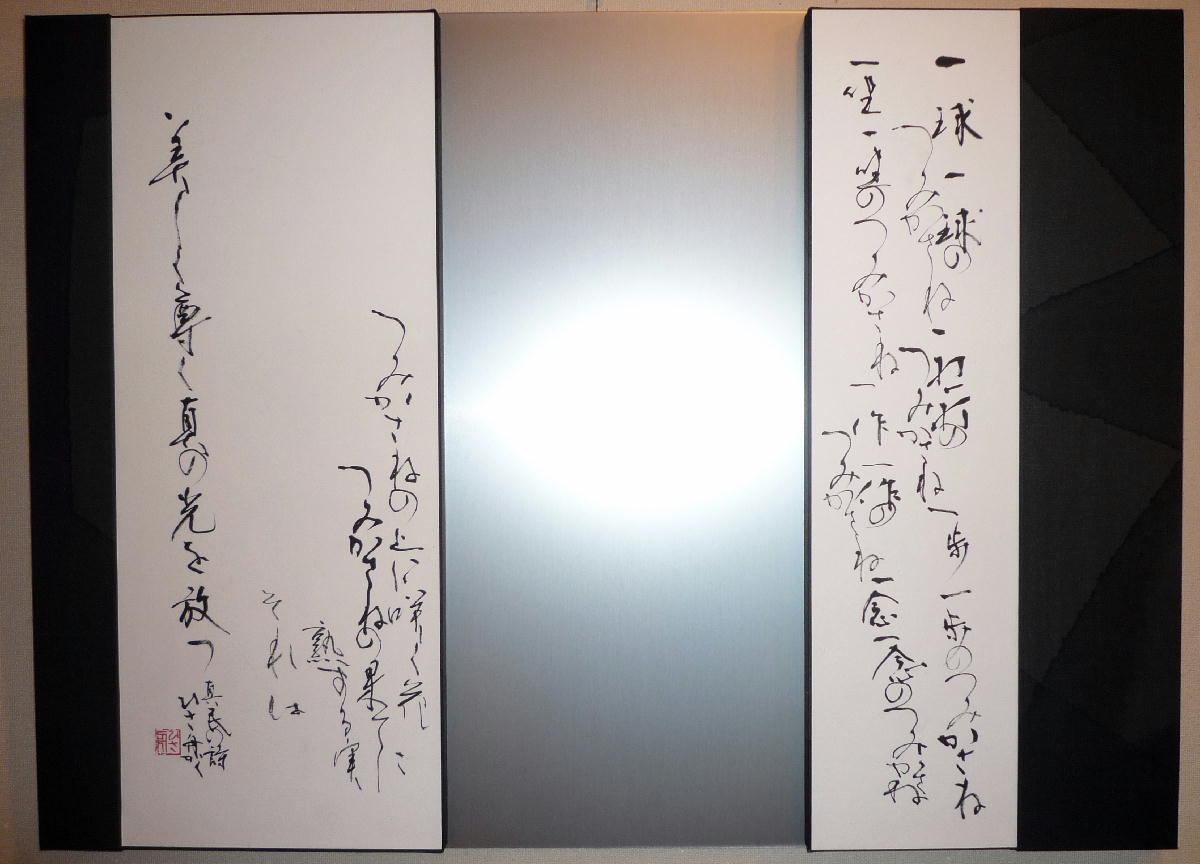 一球一球の
つみかさね
一打一打の
つみかさね
一歩一歩のつみかさね
一坐一坐のつみかさね
一作一作の
つみかさね
一念一念のつみかさね
つみかさねの上に咲く花
つみかさねの果てに
熟する実
それは
美しく尊く真の光を放つ
真民の詩
ひさ かく